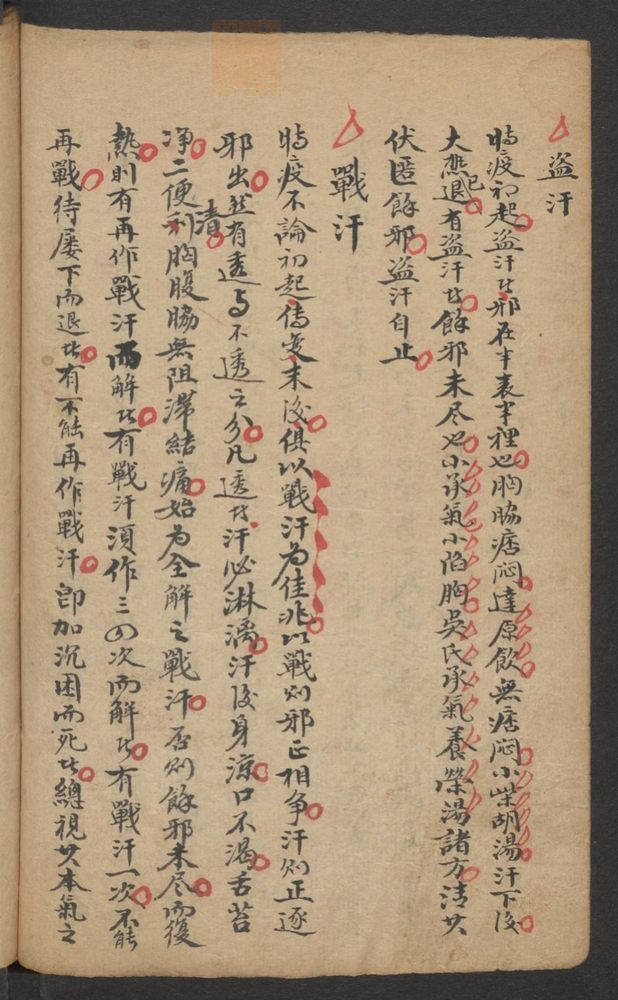 盜汗
時疫初起盜汗者邪在半表半裡也胸脇痞悶達原飲無痞悶小柴胡湯汗下後
大熱已退有盜汗者餘邪未尽也小承氣小陷胸吳氏承氣養榮湯諸方清其
伏匿餘邪盜汗自止
戰汗
時疫不論初起傳变末後俱以戰汗為佳兆以戰则邪正相争汗则正逐
邪出然有透与不透之分凡透者汗必淋漓汗後身凉口不渴舌苔
净二便清利胸腹脇無阻滯結痛始為全解之戰汗否则餘邪未尽而復
熱則有再作戰汗而解者有戰汗須作三四次而解者有戰汗一次不能
再戰待屡下而退者有不能再作戰汗即加沉困而死者總視其本氣之